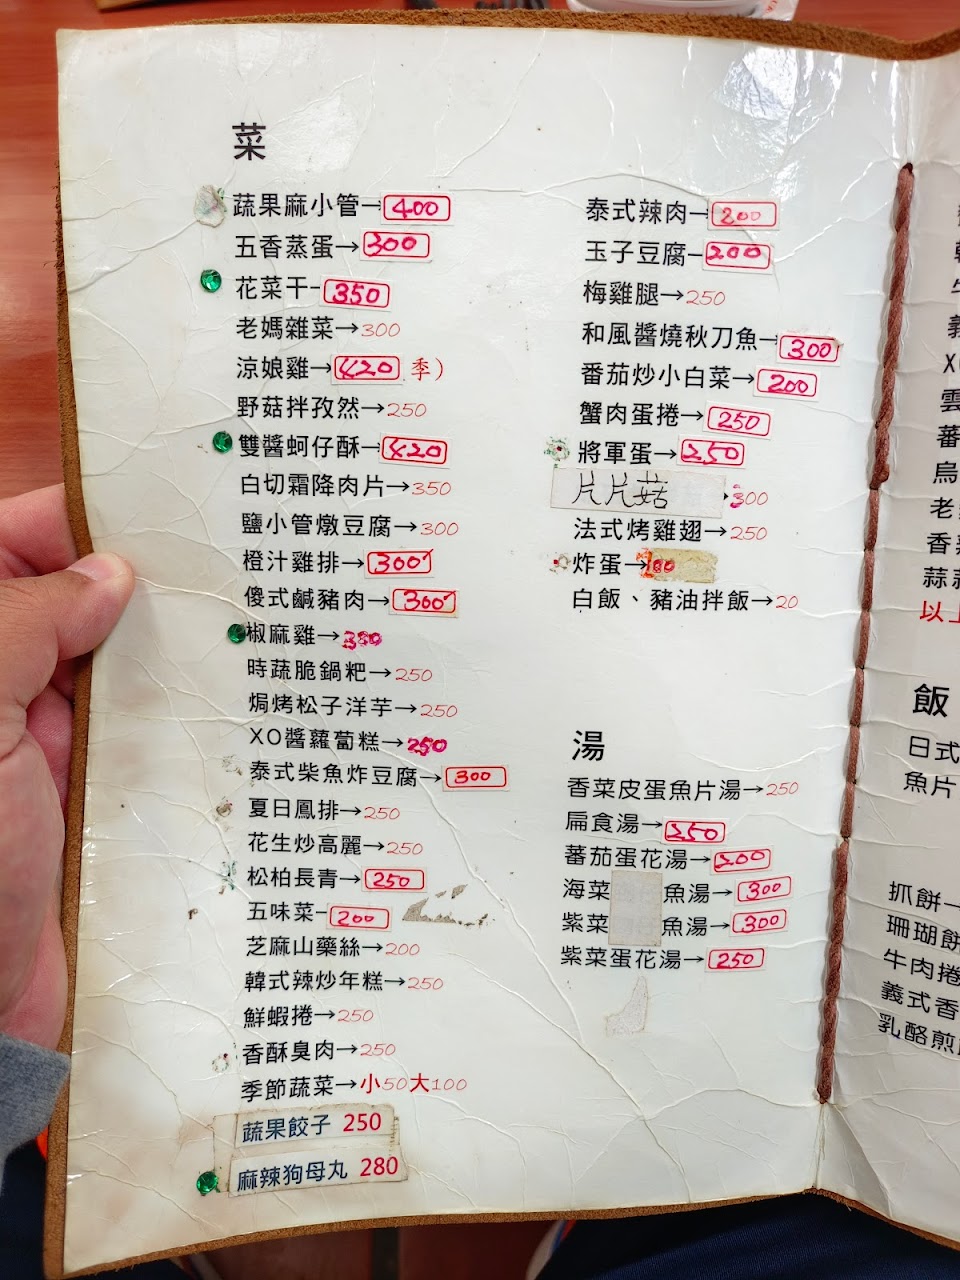 菜
蔬果麻小管→400
五香蒸蛋→300
花菜干→350
老媽雜菜→300
涼娘雞→420 季)
野菇拌孜然→250
雙醬蚵仔酥→420
白切霜降肉片→350
鹽小管燉豆腐→300
橙汁雞排→300
傻式鹹豬肉→300
椒麻雞→380
時蔬脆鍋粑→250
焗烤松子洋芋→250
XO醬蘿蔔糕→250
泰式柴魚炸豆腐→300
夏日鳳排→250
花生炒高麗→250
松柏長青→250
五味菜→200
芝麻山藥絲→200
韓式辣炒年糕→250
鮮蝦捲→250
香酥臭肉→250
季節蔬菜→小50大100
蔬果餃子 250
麻辣狗母丸 280
泰式辣肉→200
玉子豆腐→200
梅雞腿→250
和風醬燒秋刀魚→300
番茄炒小白菜→200
蟹肉蛋捲→250
將軍蛋→250
片片菇→300
法式烤雞翅→250
炸蛋→100
白飯、豬油拌飯→20
湯
香菜皮蛋魚片湯→250
扁食湯→250
蕃茄蛋花湯→200
海菜 魚湯→300
紫菜 魚湯→300
紫菜蛋花湯→250
義
XO
雲
蕃
烏
老
香
蒜
以上
飯
日式
魚片
抓餅→
珊瑚餅
牛肉捲
義式香
乳酪煎